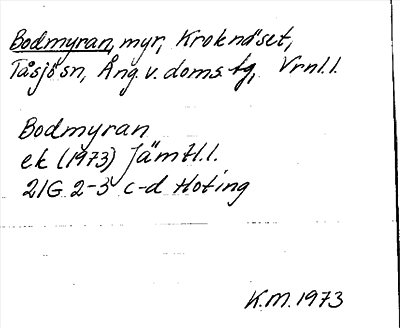 Bodmyran, myr, Kroknäset,
Tåsjö sn, Ång. v. doms. tg, Vrnl. l.
Bodmyran
ek (1973) Jämtl. l.
21G 2-3 c-d Hoting
K.M. 1973